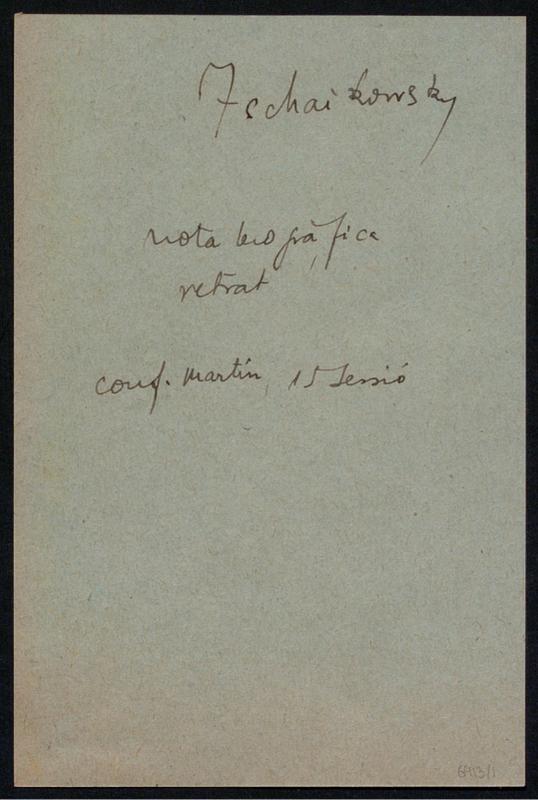 Tschaikowsky
nota biogràfica
retrat
conf. Martín, 15 sessió
6913/1